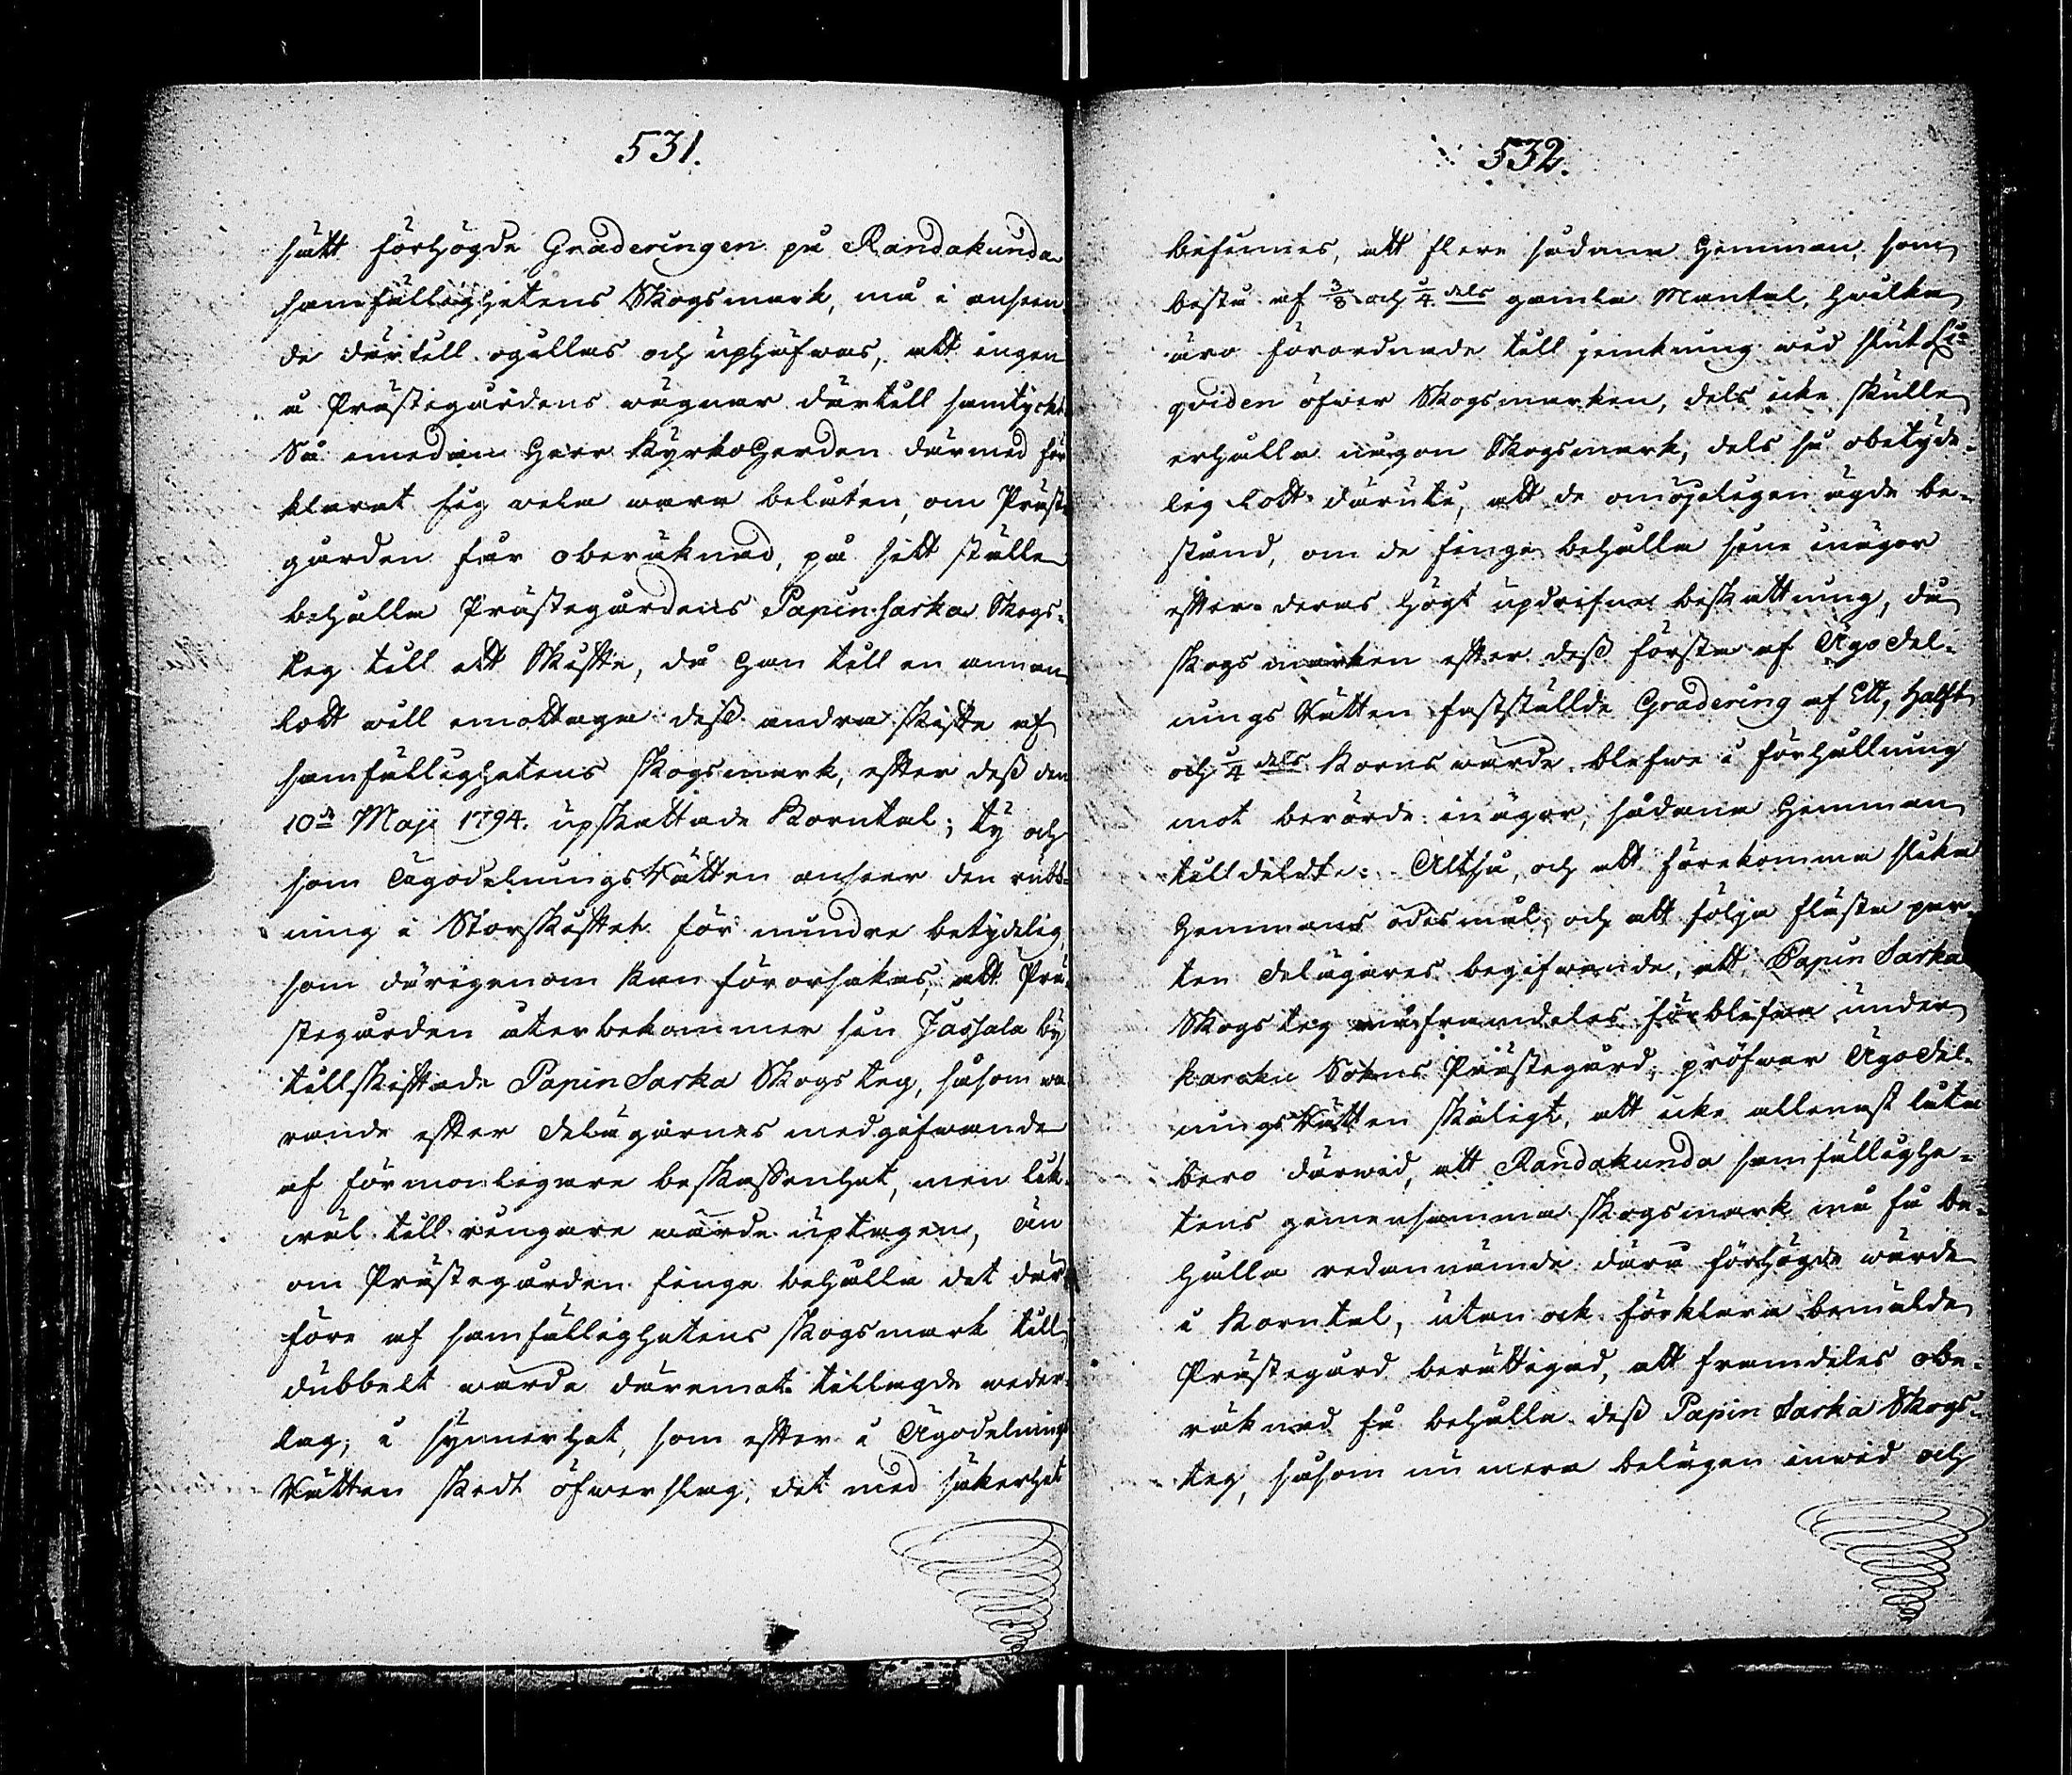 531.
sätt förhögde Graderingen på Randakunda
samfällighetens Skogsmark, må i anseen¬
de därtill ogillas och uphäfwas, att ingen
å Prästegårdens wägnar därtill samtyckt.
Så emedan Herr KyrkoHerden därmed för
klarat sig wela wara belåten, om Präste
gården får oberäknad, på sitt ställe
behålla Prästegårdens Papin Sarka Skogs¬
teg till ett Skifte, då han till en annan
lott will emottaga dess andra skifte af
samfällighetens Skogsmark, efter dess den
10de Maji 1794. upskattade Korntal; ty och
som ÄgodelningsRätten anseer den rubb¬
ning i Storskiftet för mindre betydelig,
som därigenom kan förorsakas, att Prä¬
stegården återbekommer sin Jassala by
tillskiftade Papin Sarka Skogsteg, såsom wa
rande efter delägarnes medgifwande
af förmonligare beskaffenhet, men lik¬
wäl till ringare wärde uptagen, än
om Prästegården finge behålla det där
före af samfällighetens Skogsmark till
dubbelt wärde däremot tillagde weder¬
lag, i synnerhet, som efter i Ägodelnings
Rätten skedt öfwerslag, det med säkerhet
532.
befinnes, att flere sådane Hemman, som
bestå af 3/8 och 1/4 dels gamla Mantal, hwilka
äro förordnade till jemkning wid slut Li¬
qviden öfwer Skogsmarken, dels icke skulle
erhålla någon Skogsmark, dels så obetyde¬
lig Lott däruti, att de omöjeligen ägde be¬
stånd, om de finge behålla sine inägor
efter deras högt updrifne beskattning, då
Skogsmarken efter dess första af Ägodel¬
nings Rätten fastställde Gradering af Ett, halft
och 1/4 dels Korns wärde blefwe i förhållning
mot berörde inägor, sådane Hemman
tilldeldte: Altså, och att förekomma slika
Hemmans ödesmål, och att följa fläste par¬
ten delägares begifwande, att Papin Sarka
Skogsteg må framdeles förblifwa under
Karaku Sokns Prästegård, pröfwar Ägodel¬
ningsRätten skäligt, att icke allenast låta
bero därwid, att Randakunda samfällighe¬
tens gemensamma Skogsmark må få be¬
hålla redannämde därå förhögde wärde
i Korntal, utan ock förklara bemälde
Prästegård berättigad, att framdeles obe¬
räknad få behålla dess Papin Sarka Skogs¬
teg, såsom nu mera belägen inwid och